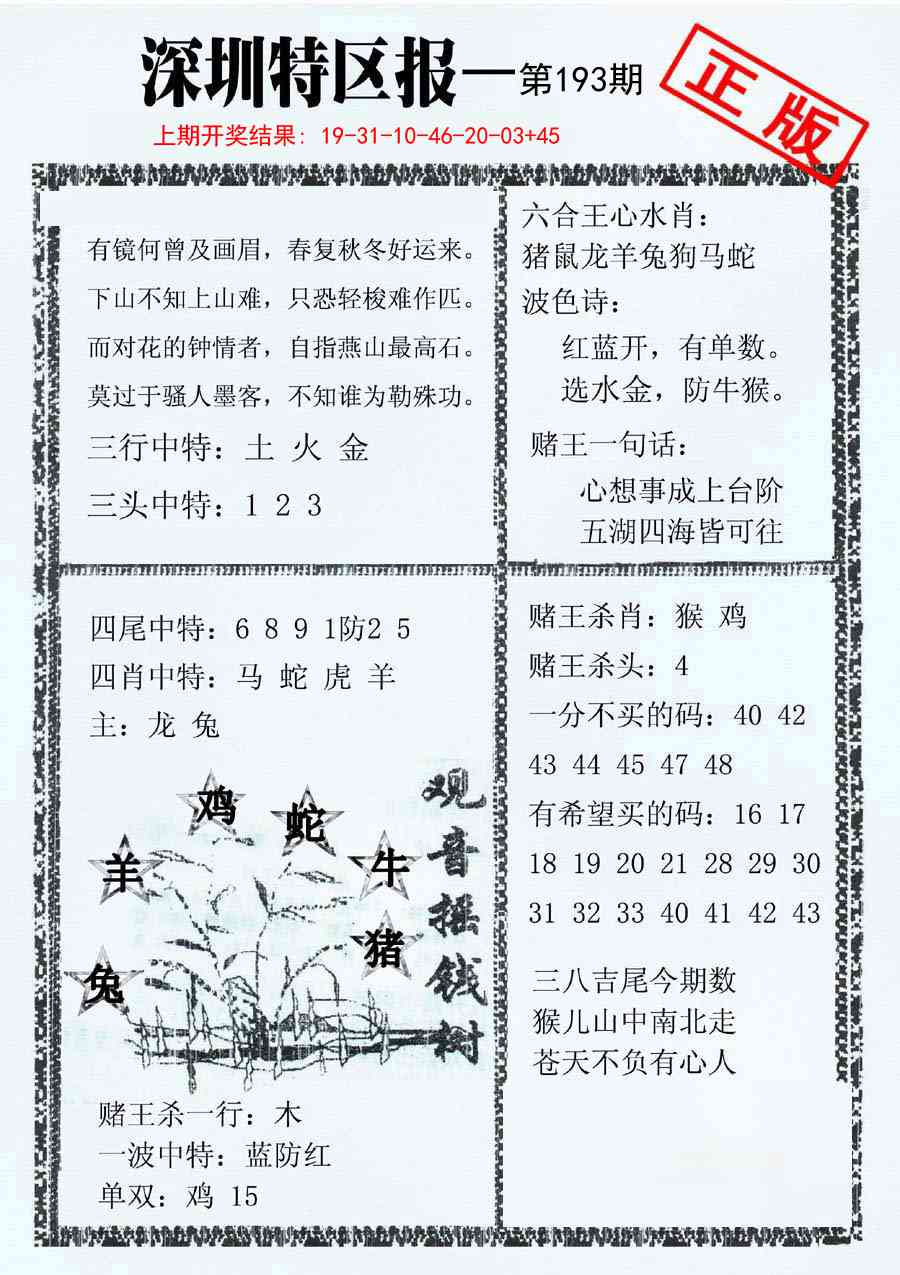 深圳特区报—第193期
正版
上期开奖结果: 19-31-10-46-20-03+45
有镜何曾及画眉，春复秋冬好运来。
下山不知上山难，只恐轻梭难作匹。
而对花的钟情者，自指燕山最高石。
莫过于骚人墨客，不知谁为勒殊功。
三行中特：土 火 金
三头中特：1 2 3
六合王心水肖：
猪鼠龙羊兔狗马蛇
波色诗：
红蓝开，有单数。
选水金，防牛猴。
赌王一句话：
心想事成上台阶
五湖四海皆可往
四尾中特：6 8 9 1防2 5
四肖中特：马 蛇 虎 羊
主：龙 兔
鸡
蛇
羊
牛
猪
兔
观音摇钱树
赌王杀一行：木
一波中特：蓝防红
单双：鸡 15
赌王杀肖：猴 鸡
赌王杀头：4
一分不买的码：40 42
43 44 45 47 48
有希望买的码：16 17
18 19 20 21 28 29 30
31 32 33 40 41 42 43
三八吉尾今期数
猴儿山中南北走
苍天不负有心人